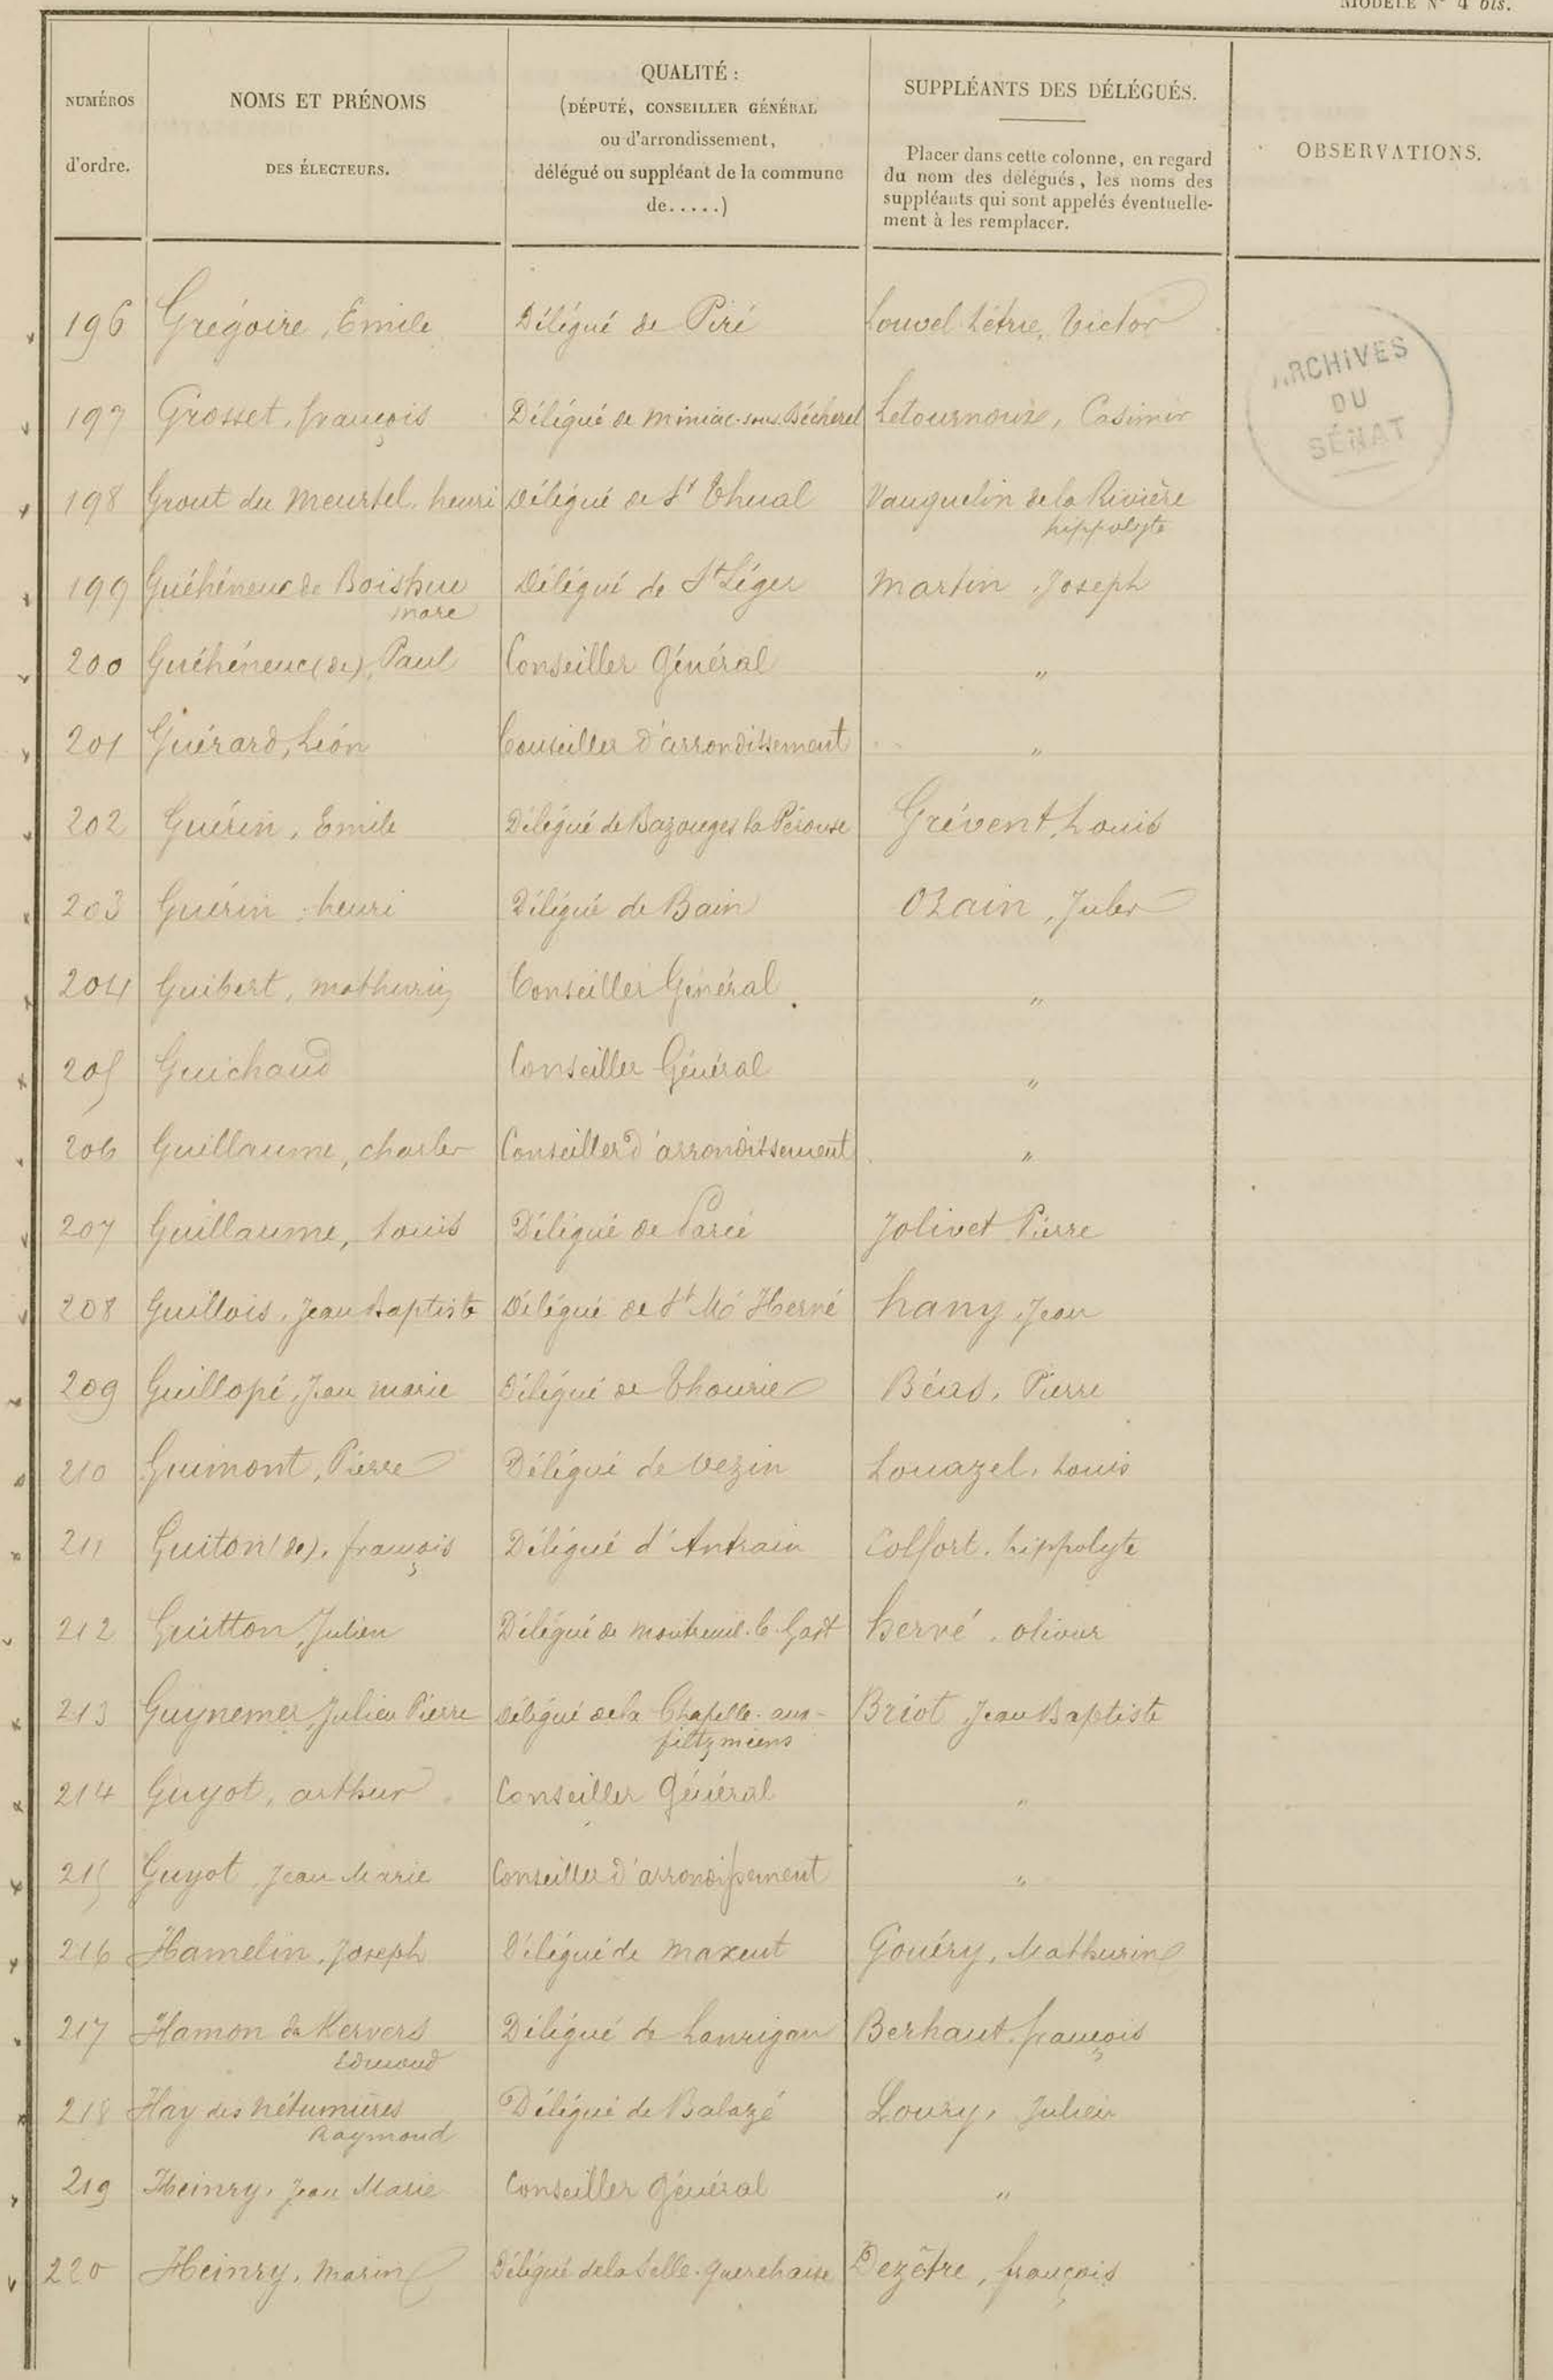 MODÈLE N° 4 bis.
NUMÉROS d'ordre.
NOMS ET PRÉNOMS
DES ÉLECTEURS.
QUALITÉ :
(DÉPUTÉ, CONSEILLER GÉNÉRAL
ou d'arrondissement,
délégué ou suppléant de la commune
de.....)
SUPPLÉANTS DES DÉLÉGUÉS.
Placer dans cette colonne, en regard
du nom des délégués, les noms des
suppléants qui sont appelés éventuelle-
ment à les remplacer.
OBSERVATIONS.
ARCHIVES
DU
SÉNAT
196 Grégoire, Emile Délégué de Piré Louvel Létrie, Victor
197 Grosset, françois Délégué de Miniac-sous-Bécherel Letournoux, Casimir
198 Grout du Meurtel, henri Délégué de St Thual Vauquelin de la Rivière
hippolyte
199 Guéhéneuc de Boishue Délégué de St Léger Martin, Joseph
mare
200 Guéhéneuc (de), Paul Conseiller Général "
201 Guérard, Léon Conseiller d'arrondissement "
202 Guérin, Emile Délégué de Bazouges la Pérouse Grévent, Louis
203 Guérin, henri Délégué de Bain Ozain, Jules
204 Guibert, mathurin Conseiller Général "
205 Guichaud Conseiller Général "
206 Guillaume, charles Conseiller d'arrondissement "
207 Guillaume, Louis Délégué de Parcé Jolivet Pierre
208 Guillois, Jean Baptiste Délégué de St M' Hervé hany, Jean
209 Guillopé, Jean marie Délégué de Thourie Béas, Pierre
210 Guimont, Pierre Délégué de Vezin Louazel, Louis
211 Guiton (de), françois Délégué d'Antrain Colfort, hippolyte
212 Guitton, Julien Délégué de montreuil-le-Gast hervé, olivier
213 Guynemer, Julien Pierre Délégué de la Chapelle-aux-
filtzméens Briot Jean Baptiste
214 Guyot, arthur Conseiller Général "
215 Guyot, Jean Marie Conseiller d'arrondissement "
216 Hamelin, Joseph Délégué de maxent Gouéry, Mathurin
217 Hamon de Kervers Délégué de Lanrigan Berhaut, françois
Edmond
218 Hay des Nétumières Délégué de Balazé Loury, Julien
Raymond
219 Heinry, Jean Marie Conseiller Général "
220 Heinry, marin Délégué de la Selle-Guerchaise Dezêtre, françois